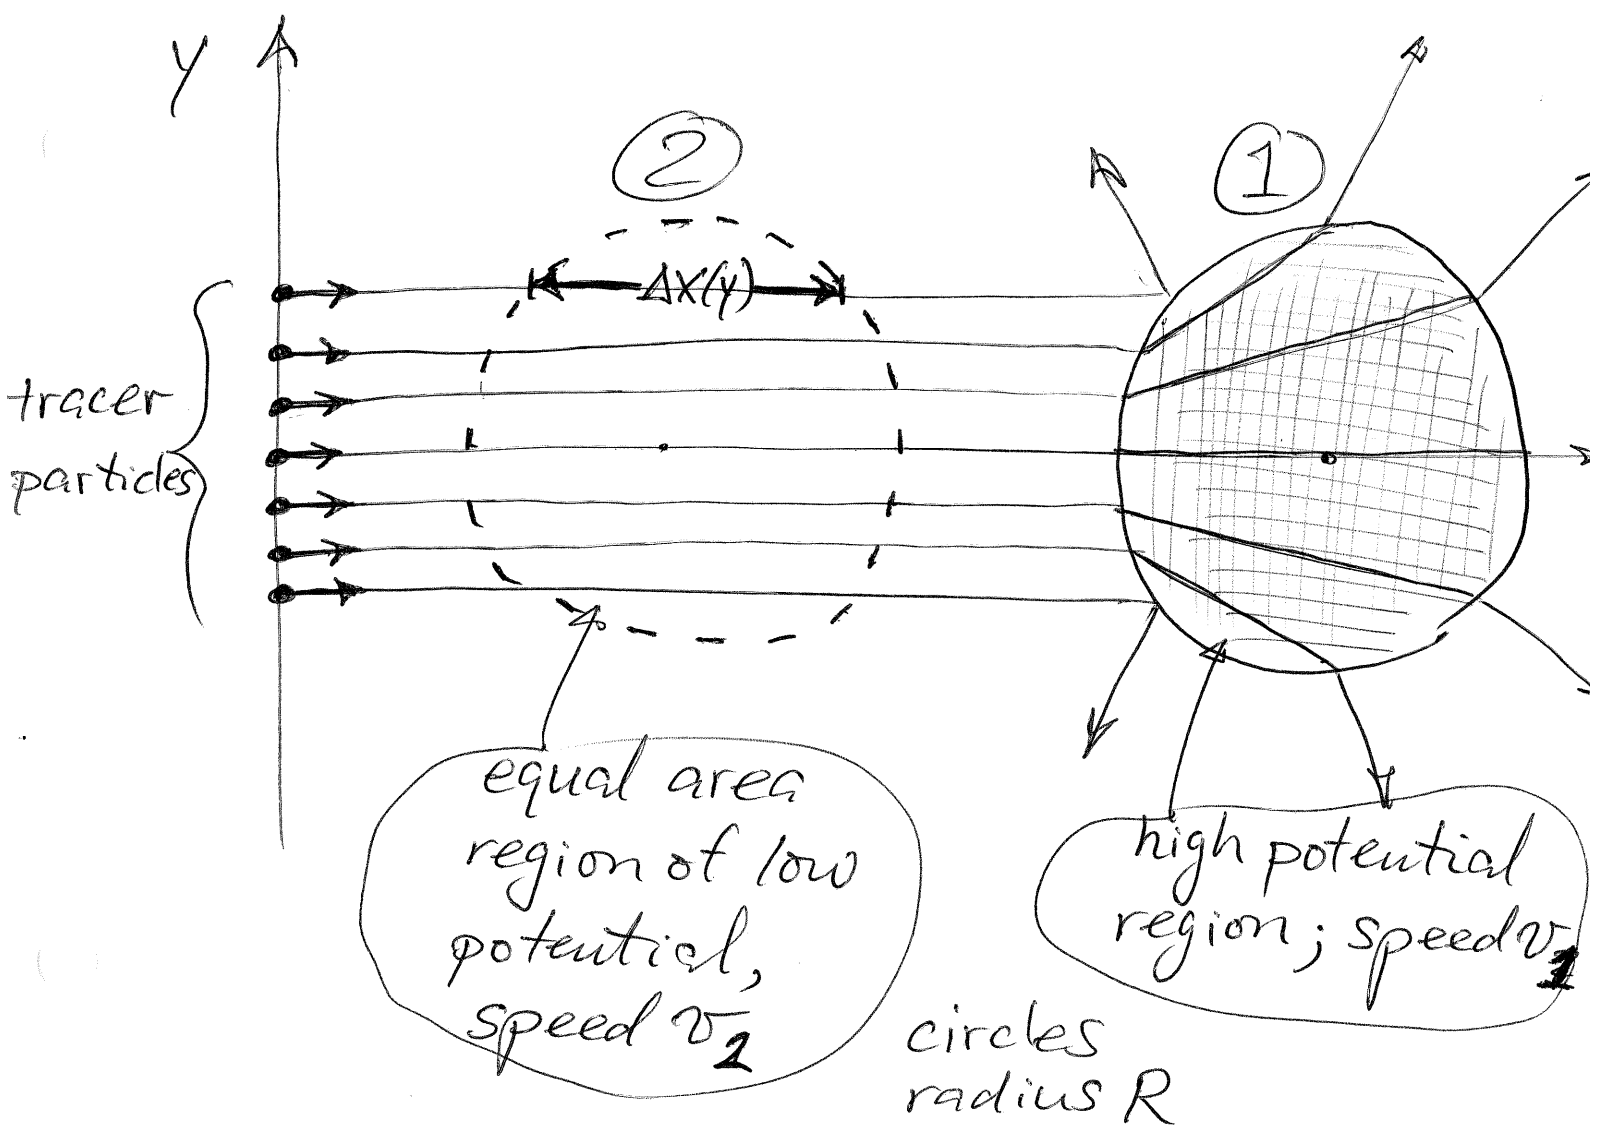 y
②
①
ΔX(y)
tracer
particles
equal area
region of low
potential,
speed v₂
high potential
region; speed v₁
circles
radius R